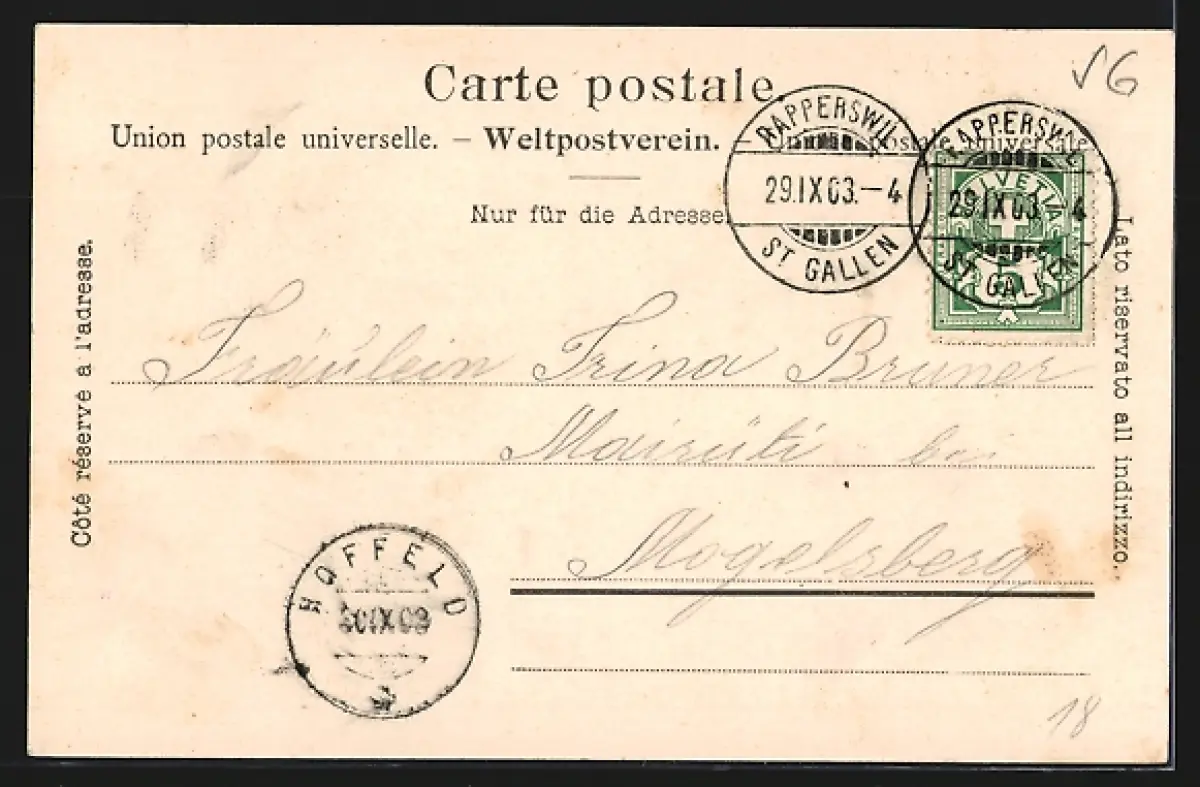 VG
Carte postale.
Union postale universelle. – Weltpostverein. – Unione postale universale
Nur für die Adresse.
RAPPERSWIL
29.IX.03.–4
ST GALLEN
RAPPERSWIL
29.IX.03.–4
ST GALLEN
HELVETIA
5
Côté réservé à l'adresse.
Lato riservato all indirizzo.
Fräulein Trina Bruner
Mairüti bei
Mogelsberg
HOFFELD
IX 03
18